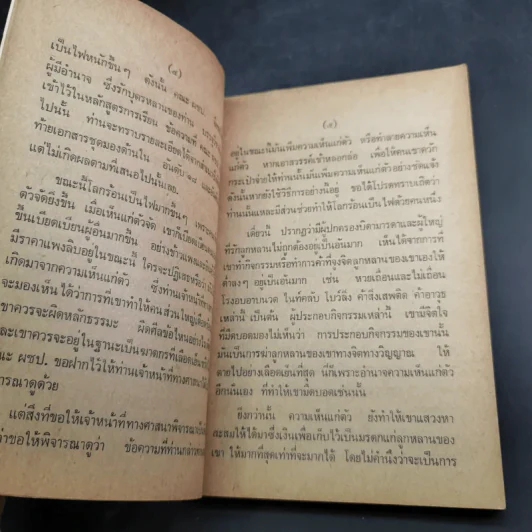 (๔)
เป็นไฟหนักขึ้นๆ ดังนั้น คณะ ผชป.
ผู้มีอำนาจ ซึ่งรักบุตรหลานของท่าน
เข้าไว้ในหลักสูตรการเรียน ข้อความที่ คณะ
ไปนั้น ท่านจะทราบรายละเอียดได้จาก
ท้ายเอกสารชุดมองด้านใน อันดับ ๑๘
แต่ไม่เกิดผลตามที่เสนอไปนั้นเลย.
ขณะนี้โลกร้อนเป็นไฟมากขึ้นๆ เพราะ
ตัวจัดยิ่งขึ้น เมื่อเห็นแก่ตัวจัด เขาก็เบียด
ขึ้นเบียดเบียนผู้อื่นมากขึ้น อย่างข้าวแพง
มีราคาแพงลิบอยู่ในขณะนี้ ใครจะปฏิเสธหรือว่า
เกิดมาจากความเห็นแก่ตัว ซึ่งท่านเจ้าหน้าที่
จะมองเห็นได้ว่าการที่เขาทำให้คนส่วนใหญ่เดือดร้อน
เขาควรจะผิดหลักธรรมะ ผิดศีลข้อไหนอย่างไร
และเขาควรจะอยู่ในฐานะเป็นฆาตกรที่เลือดเย็น
ณะ ผชป. ขอฝากไว้ให้ท่านเจ้าหน้าที่ทางศาสนา
ารณาดูด้วย
แต่สิ่งที่ขอให้เจ้าหน้าที่ทางศาสนาพิจารณา
ว่าขอให้พิจารณาดูว่า ข้อความที่ท่านกล่าว
(๕)
อยู่ในขณะนี้มันเพิ่มความเห็นแก่ตัว หรือทำลายความเห็น
แก่ตัว หากเอาสวรรค์เข้าหลอกล่อ เพื่อให้คนเขาควัก
กระเป๋าจ่ายให้ท่านนั้นมันเพิ่มความเห็นแก่ตัวอย่างชัดแจ้ง
ดังนั้นหากยังใช้วิธีการอย่างนี้อยู่ ขอได้โปรดทราบเถิดว่า
ท่านนั้นและมีส่วนช่วยทำให้โลกร้อนเป็นไฟด้วยคนหนึ่ง
เดี๋ยวนี้ ปรากฏว่ามีผู้ปกครองบิดามารดาและผู้ใหญ่
ที่รักลูกหลานไม่ถูกต้องอยู่เป็นอันมาก เห็นได้จากการที่
เขาทำกิจกรรมหรือทำการค้าที่จูงจิตลูกหลานของเขาเองให้
ต่ำลงๆ อยู่เป็นอันมาก เช่น หวยเถื่อนและไม่เถื่อน
โรงอบอาบนวด ไนท์คลับ โบว์ลิ่ง ค้าสิ่งเสพติด ค้าอาวุธ
เหล่านี้ เป็นต้น ผู้ประกอบกิจกรรมเหล่านี้ เขามีจิตใจ
ที่มืดบอดมองไม่เห็นว่า การประกอบกิจกรรมของเขานั้น
มันเป็นการฆ่าลูกหลานของเขาทางจิตทางวิญญาณ ให้
ตายไปอย่างเลือดเย็นที่สุด นี่ก็เพราะอำนาจความเห็นแก่ตัว
อีกนั่นเอง ที่ทำให้เขามืดบอดเช่นนั้น
ยิ่งกว่านั้น ความเห็นแก่ตัว ยังทำให้เขาแสวงหา
สะสมให้ได้มาซึ่งเงินเพื่อเก็บไว้เป็นมรดกแก่ลูกหลานของ
เขา ให้มากที่สุดเท่าที่จะมากได้ โดยไม่คำนึงว่าจะเป็นการ